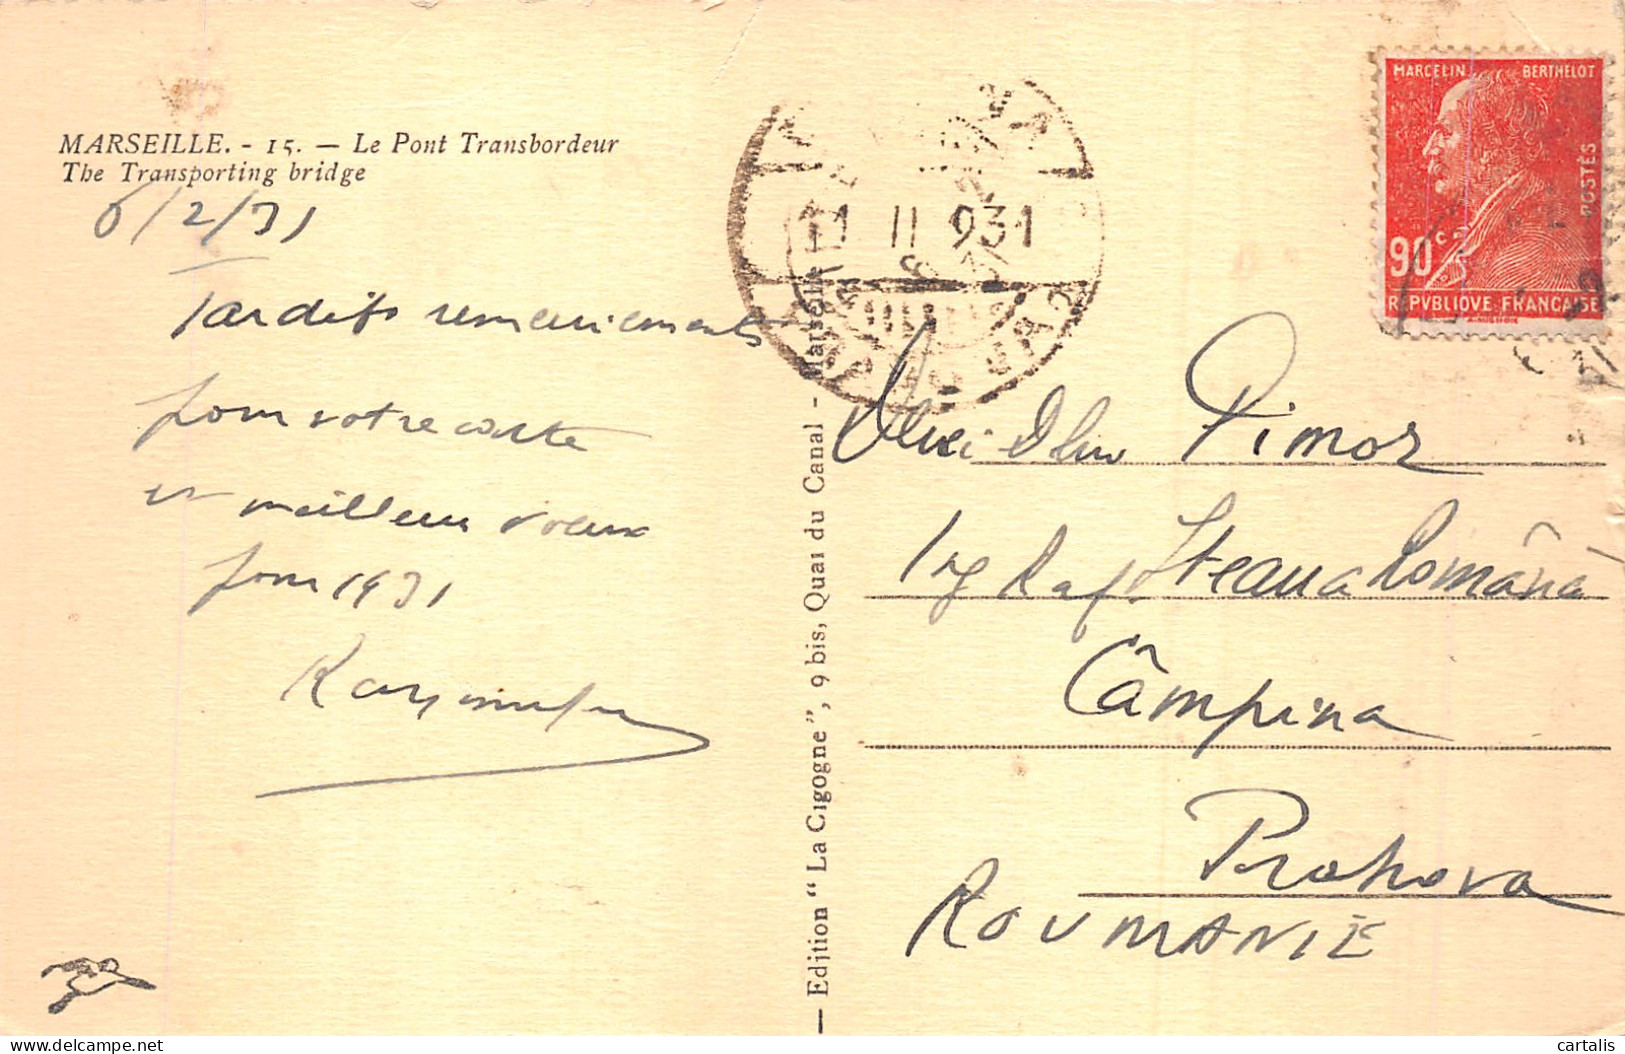 MARSEILLE. - 15. — Le Pont Transbordeur
The Transporting bridge
6/2/31
Tardifs remerciements
pour votre carte
et meilleurs voeux
pour 1931
— Edition "La Cigogne", 9 bis, Quai du Canal - Marseille
11 II 931
MARCELIN BERTHELOT
POSTES
90c
REPVBLIQVE FRANÇAISE
Pimor
Ing Raf. Steaua Română
Câmpina
Prahova
ROUMANIE
cartalis